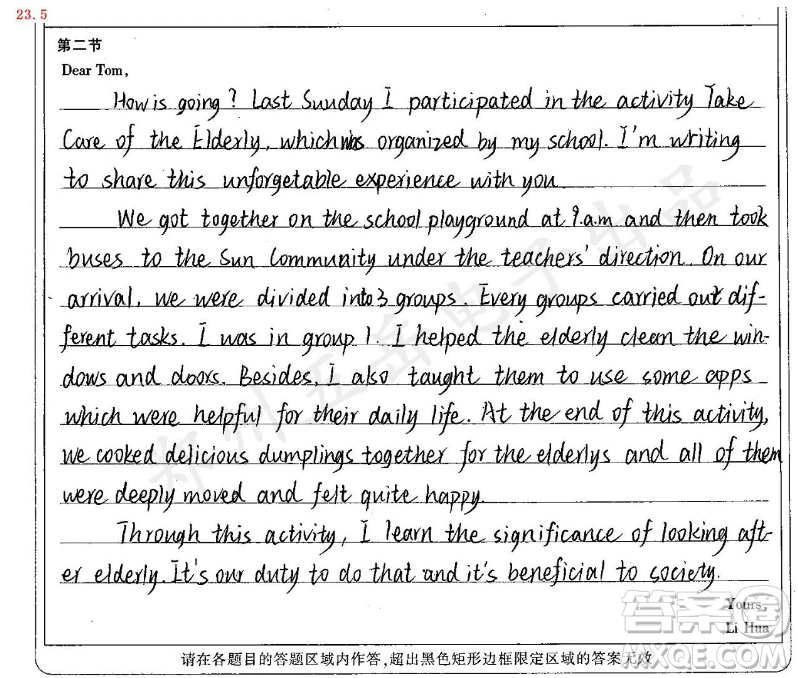 23.5
第二节
Dear Tom,
How is going? Last Sunday I participated in the activity Take
Care of the Elderly, which was organized by my school. I'm writing
to share this unforgetable experience with you.
We got together on the school playground at 9.a.m and then took
buses to the Sun Community under the teachers' direction. On our
arrival, we were divided into 3 groups. Every groups carried out dif-
ferent tasks. I was in group 1. I helped the elderly clean the win-
dows and doors. Besides, I also taught them to use some apps
which were helpful for their daily life. At the end of this activity,
we cooked delicious dumplings together for the elderlys and all of them
were deeply moved and felt quite happy.
Through this activity, I learn the significance of looking aft-
er elderly. It's our duty to do that and it's beneficial to society.
Yours,
Li Hua
请在各题目的答题区域内作答,超出黑色矩形边框限定区域的答案无效
郑州五岳电子出品
答案圈
MXQE.COM